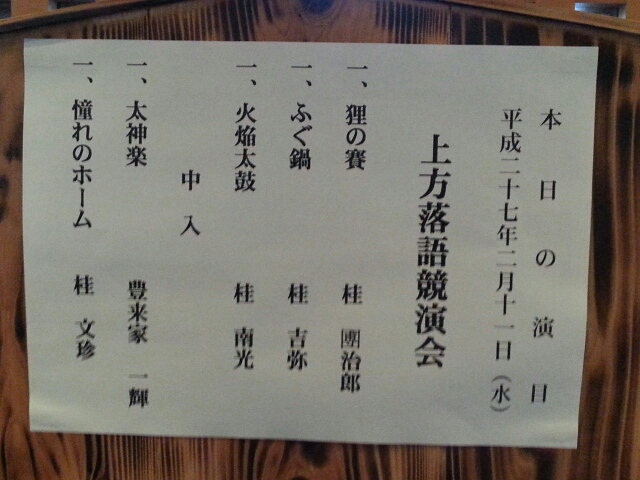 本日の演目
平成二十七年二月十一日（水）
上方落語競演会
一、狸の賽　桂　團治郎
一、ふぐ鍋　桂　吉弥
一、火焔太鼓　桂　南光
中入
一、太神楽　豊来家　一輝
一、憧れのホーム　桂　文珍